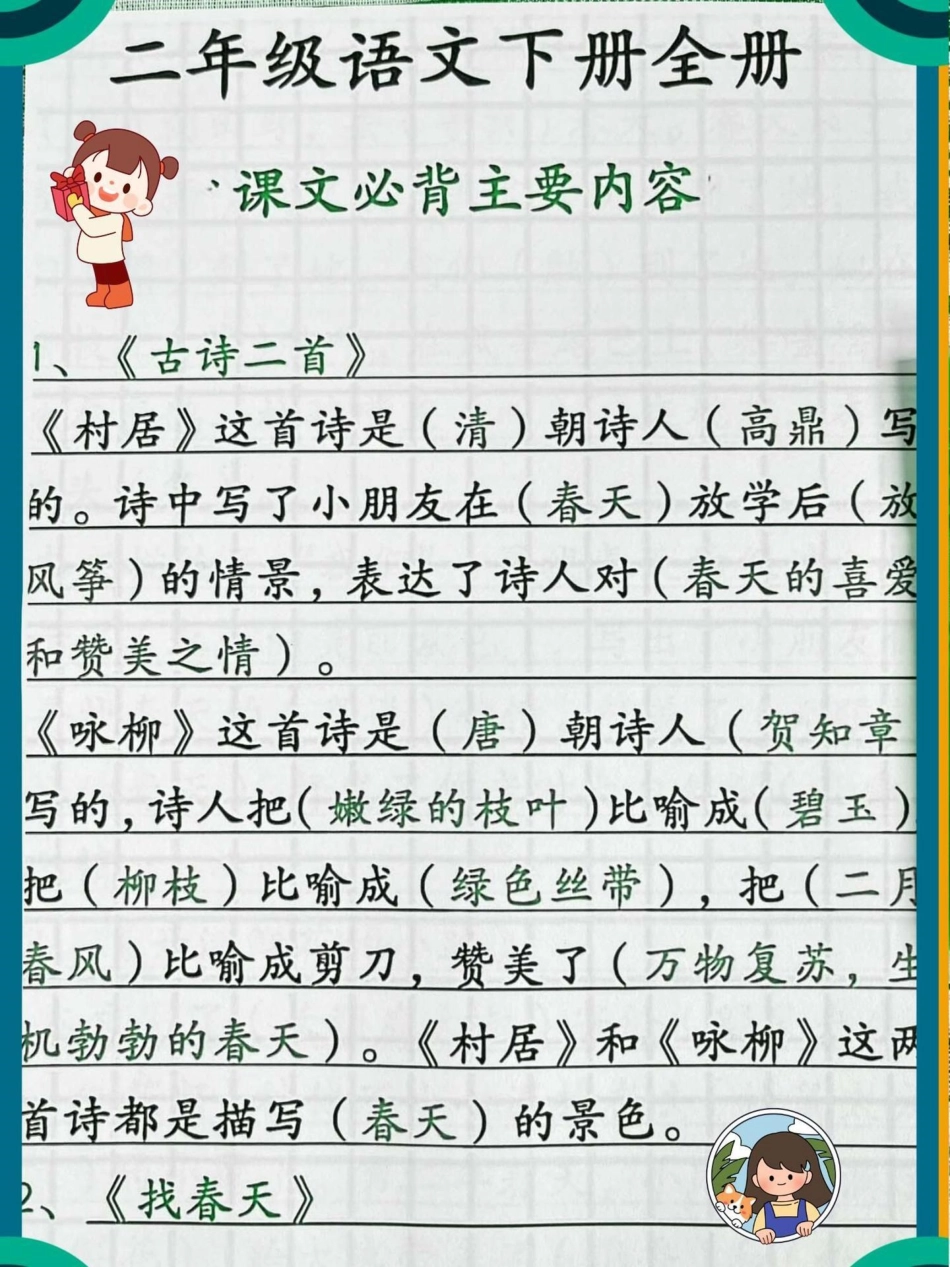 二年级语文下册全册
课文必背主要内容
1、《古诗二首》
《村居》这首诗是(清)朝诗人(高鼎)写
的。诗中写了小朋友在(春天)放学后(放
风筝)的情景,表达了诗人对(春天的喜爱
和赞美之情)。
《咏柳》这首诗是(唐)朝诗人(贺知章
写的,诗人把(嫩绿的枝叶)比喻成(碧玉)
把(柳枝)比喻成(绿色丝带),把(二月
春风)比喻成剪刀,赞美了(万物复苏,生
机勃勃的春天)。《村居》和《咏柳》这两
首诗都是描写(春天)的景色。
2、《找春天》